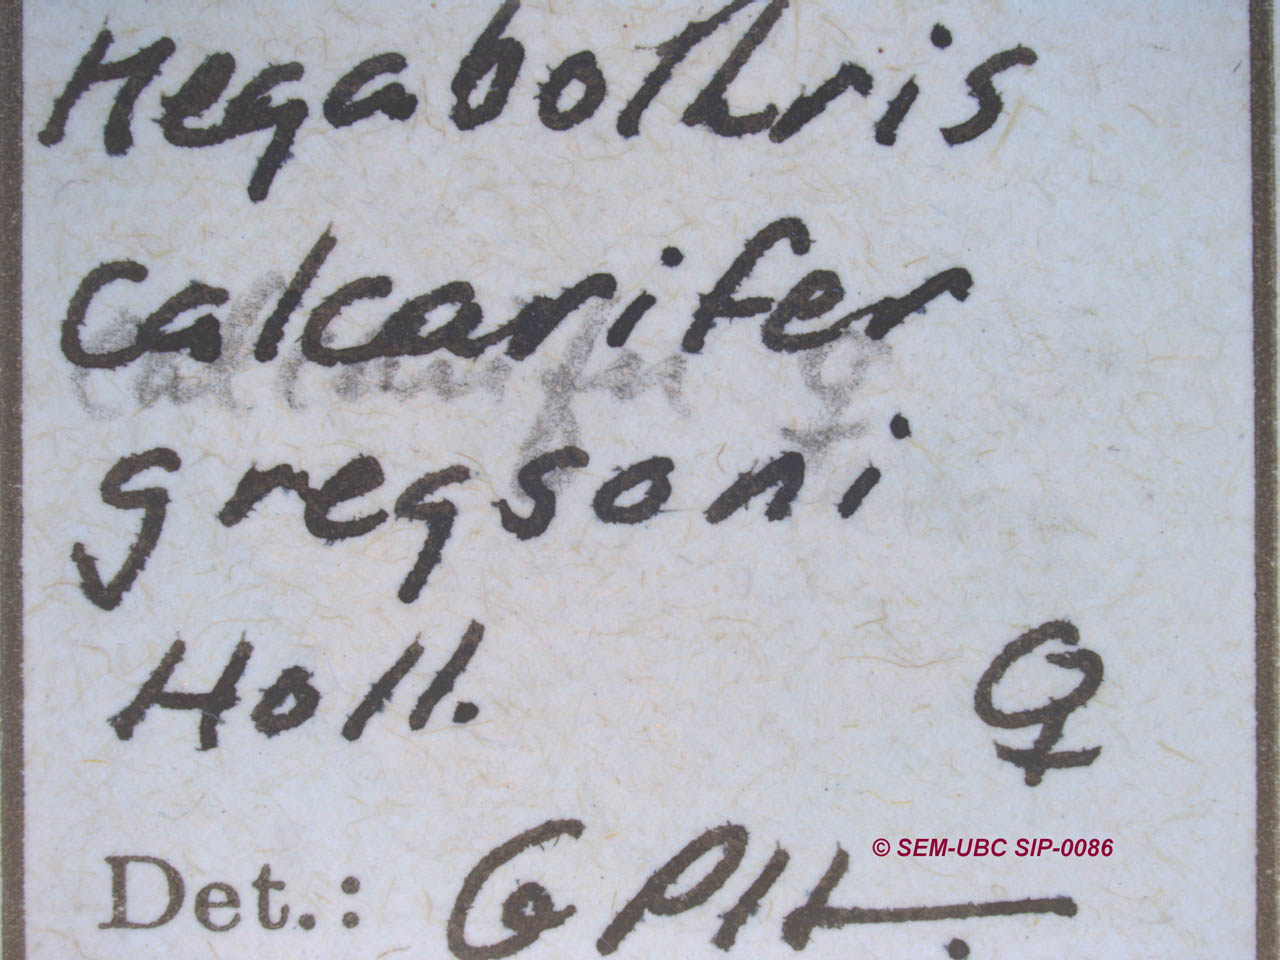 Megabothris
calcarifer
gregsoni
Holl. ♀
© SEM-UBC SIP-0086
Det.: GPH.